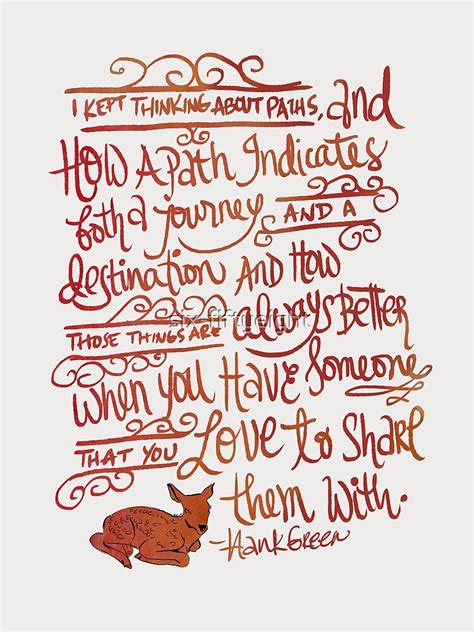 I KEPT THINKING ABOUT PATHS, and
HOW A PATH Indicates
both a journey AND A
destination AND HOW
THOSE THINGS ARE always BETTER
six-fiftyeight
when you HAVE Someone
THAT YOU LOVE to SHARE
them With.
-Hank Green